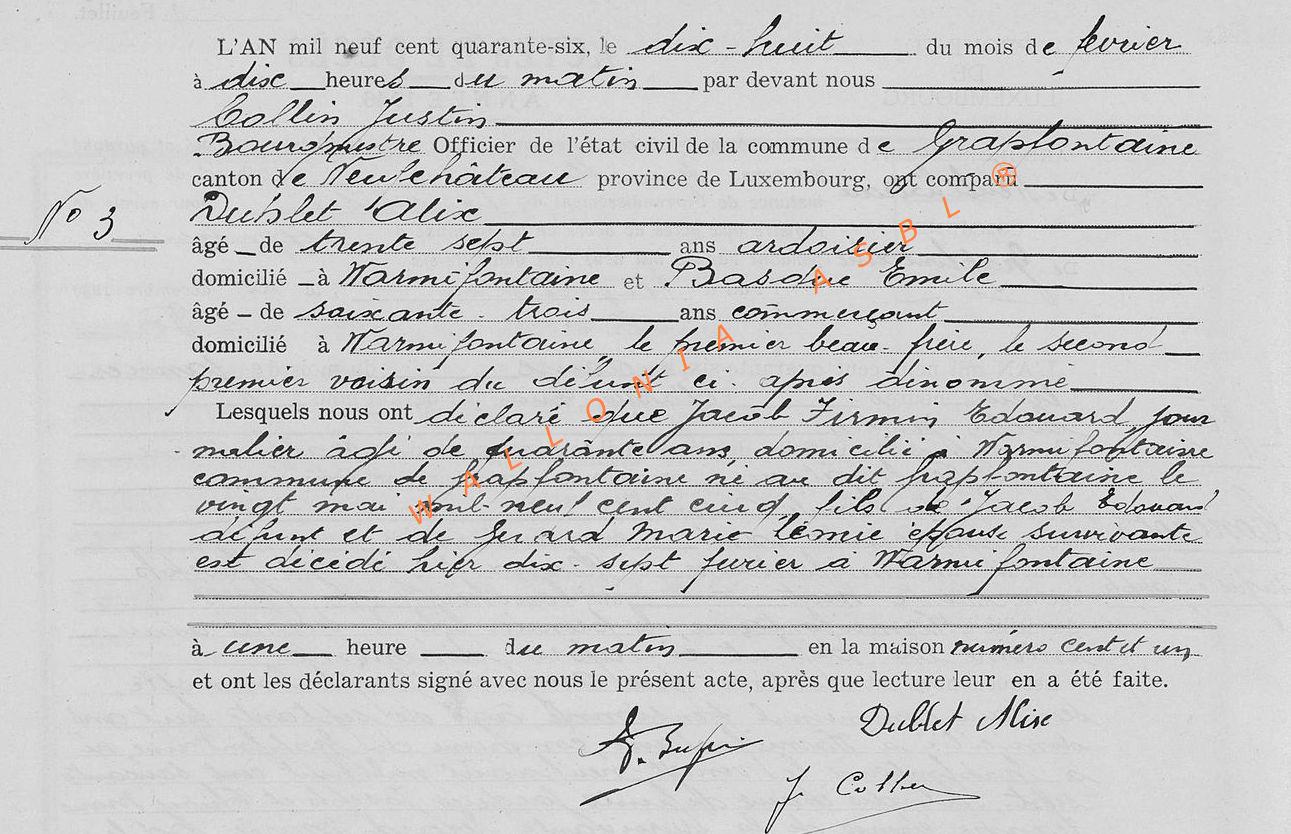 L'AN mil neuf cent quarante-six, le dix-huit du mois de février
à dix heures du matin par devant nous
Collin Justin
Bourgmestre Officier de l'état civil de la commune de Grapfontaine
canton de Neufchâteau province de Luxembourg, ont comparu
N° 3
Dublet Alix
âgé de trente sept ans ardoisier
domicilié à Warmifontaine et Emile
âgé de soixante-trois ans commerçant
domicilié à Warmifontaine, le premier beau-frère, le second
premier voisin du défunt ci-après dénommé
Lesquels nous ont déclaré que Jacob Firmin Edouard jour
nalier âgé de quarante ans, domicilié à Warmifontaine
commune de Grapfontaine né au dit Grapfontaine le
vingt mai mil-neuf cent cinq, fils de Jacob Edouard
défunt et de Gérard Marie épouse survivante
est décédé hier dix-sept février à Warmifontaine
à une heure du matin en la maison numéro cent et un
et ont les déclarants signé avec nous le présent acte, après que lecture leur en a été faite.
Dublet Alix
J Collin
WALLONIA ASBL ®